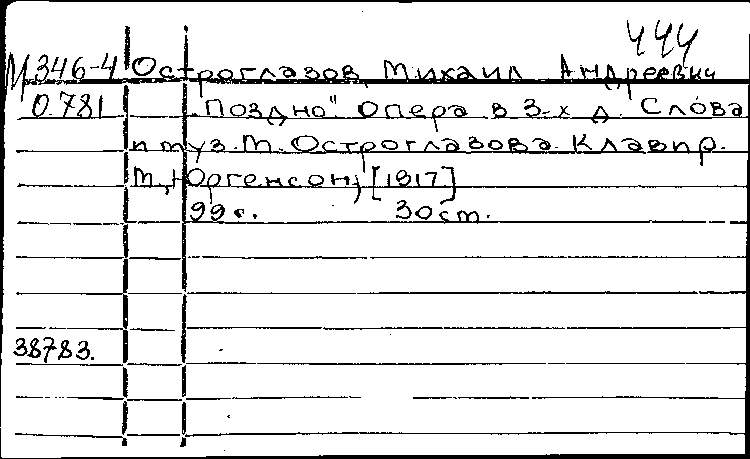 444
М346-4 Остроглазов, Михаил Андреевич
0.781 „Поздно" опера в 3-х д. Слова
и муз. М. Остроглазова. Клавир.
М., Юргенсон, [1817]
99 с. 30 ст.
38783.